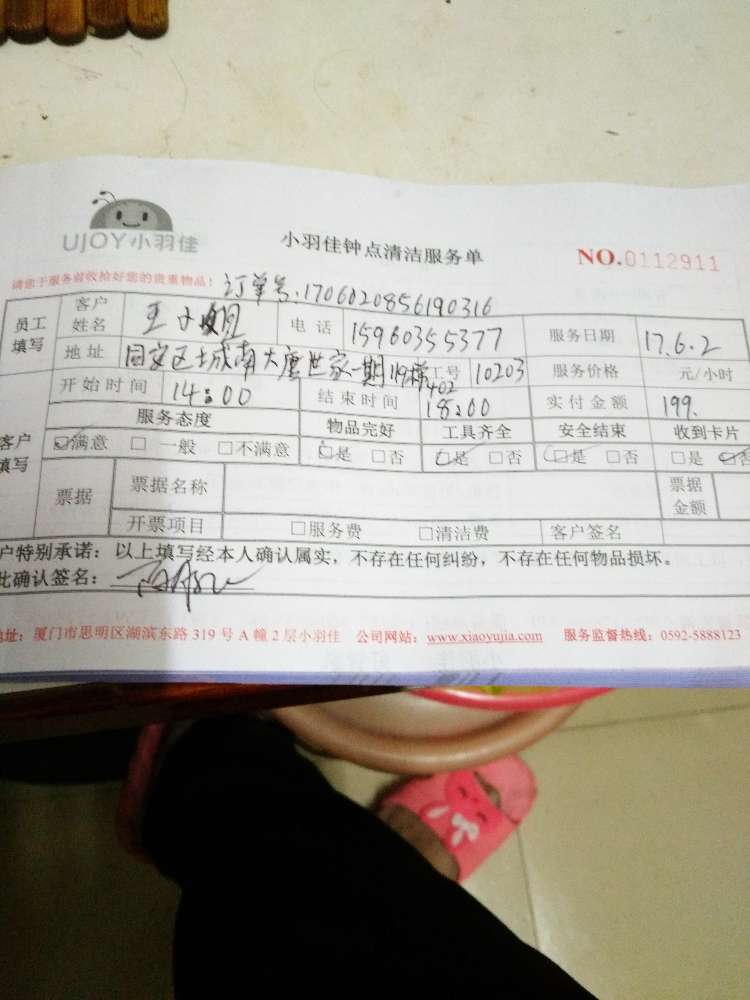 UJOY小羽佳
小羽佳钟点清洁服务单
NO.0112911
请您于服务前收拾好您的贵重物品!
订单号:1706020856190316
员工填写 客户姓名 王 电话 15960355377 服务日期 17.6.2
地址 同安区土城南大唐世家一期19梯402 工号 10203 服务价格 元/小时
开始时间 14:00 结束时间 18:00 实付金额 199.
客户填写 服务态度 物品完好 工具齐全 安全结束 收到卡片
☑满意 □一般 □不满意 ☑是 □否 ☑是 □否 ☑是 □否 □是 ☑否
票据 票据名称 票据金额
开票项目 □服务费 □清洁费 客户签名
户特别承诺:以上填写经本人确认属实,不存在任何纠纷,不存在任何物品损坏。
此确认签名:
地址:厦门市思明区湖滨东路 319 号 A 幢 2 层小羽佳 公司网站:www.xiaoyujia.com 服务监督热线:0592-5888123